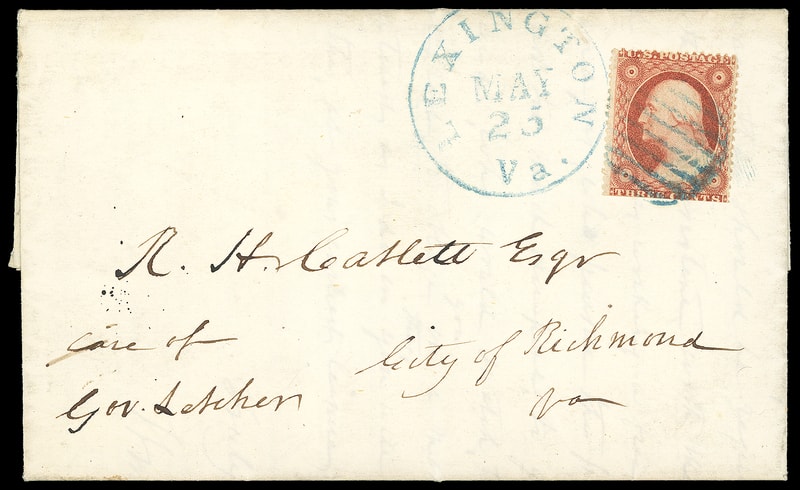 LEXINGTON
MAY
25
Va.
U.S. POSTAGE
THREE CENTS
R. H. Catlett Esqr
care of
City of Richmond
Gov. Letcher
Va